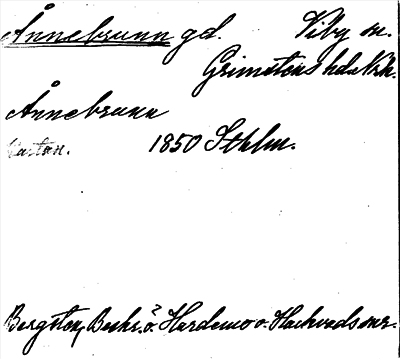 Ånnebrunn gd. Viby sn.
Grimstens hd. Nrk.
Ånnebrunn
1850 Sthlm.
Bergsten, Beskr. ö. Hardemo o. Hackvads snr.